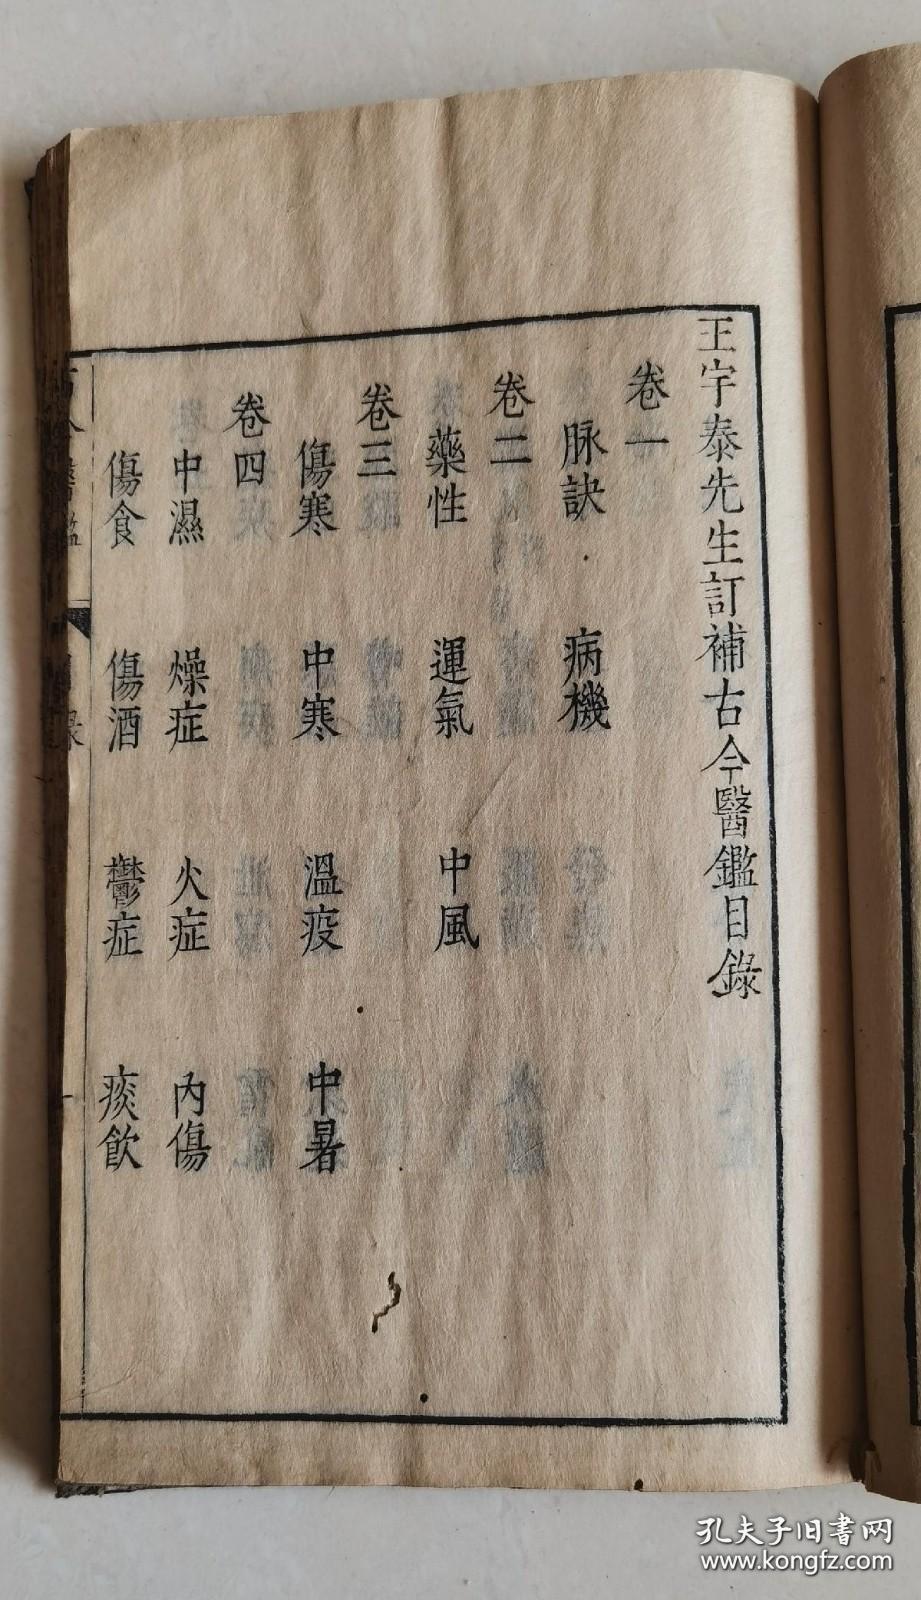 王宇泰先生訂補古今醫鑑目錄
卷一
脉訣　病機
卷二
藥性　運氣　中風
卷三
傷寒　中寒　溫疫　中暑
卷四
中濕　燥症　火症　內傷
傷食　傷酒　鬱症　痰飲
孔夫子旧书网
www.kongfz.com